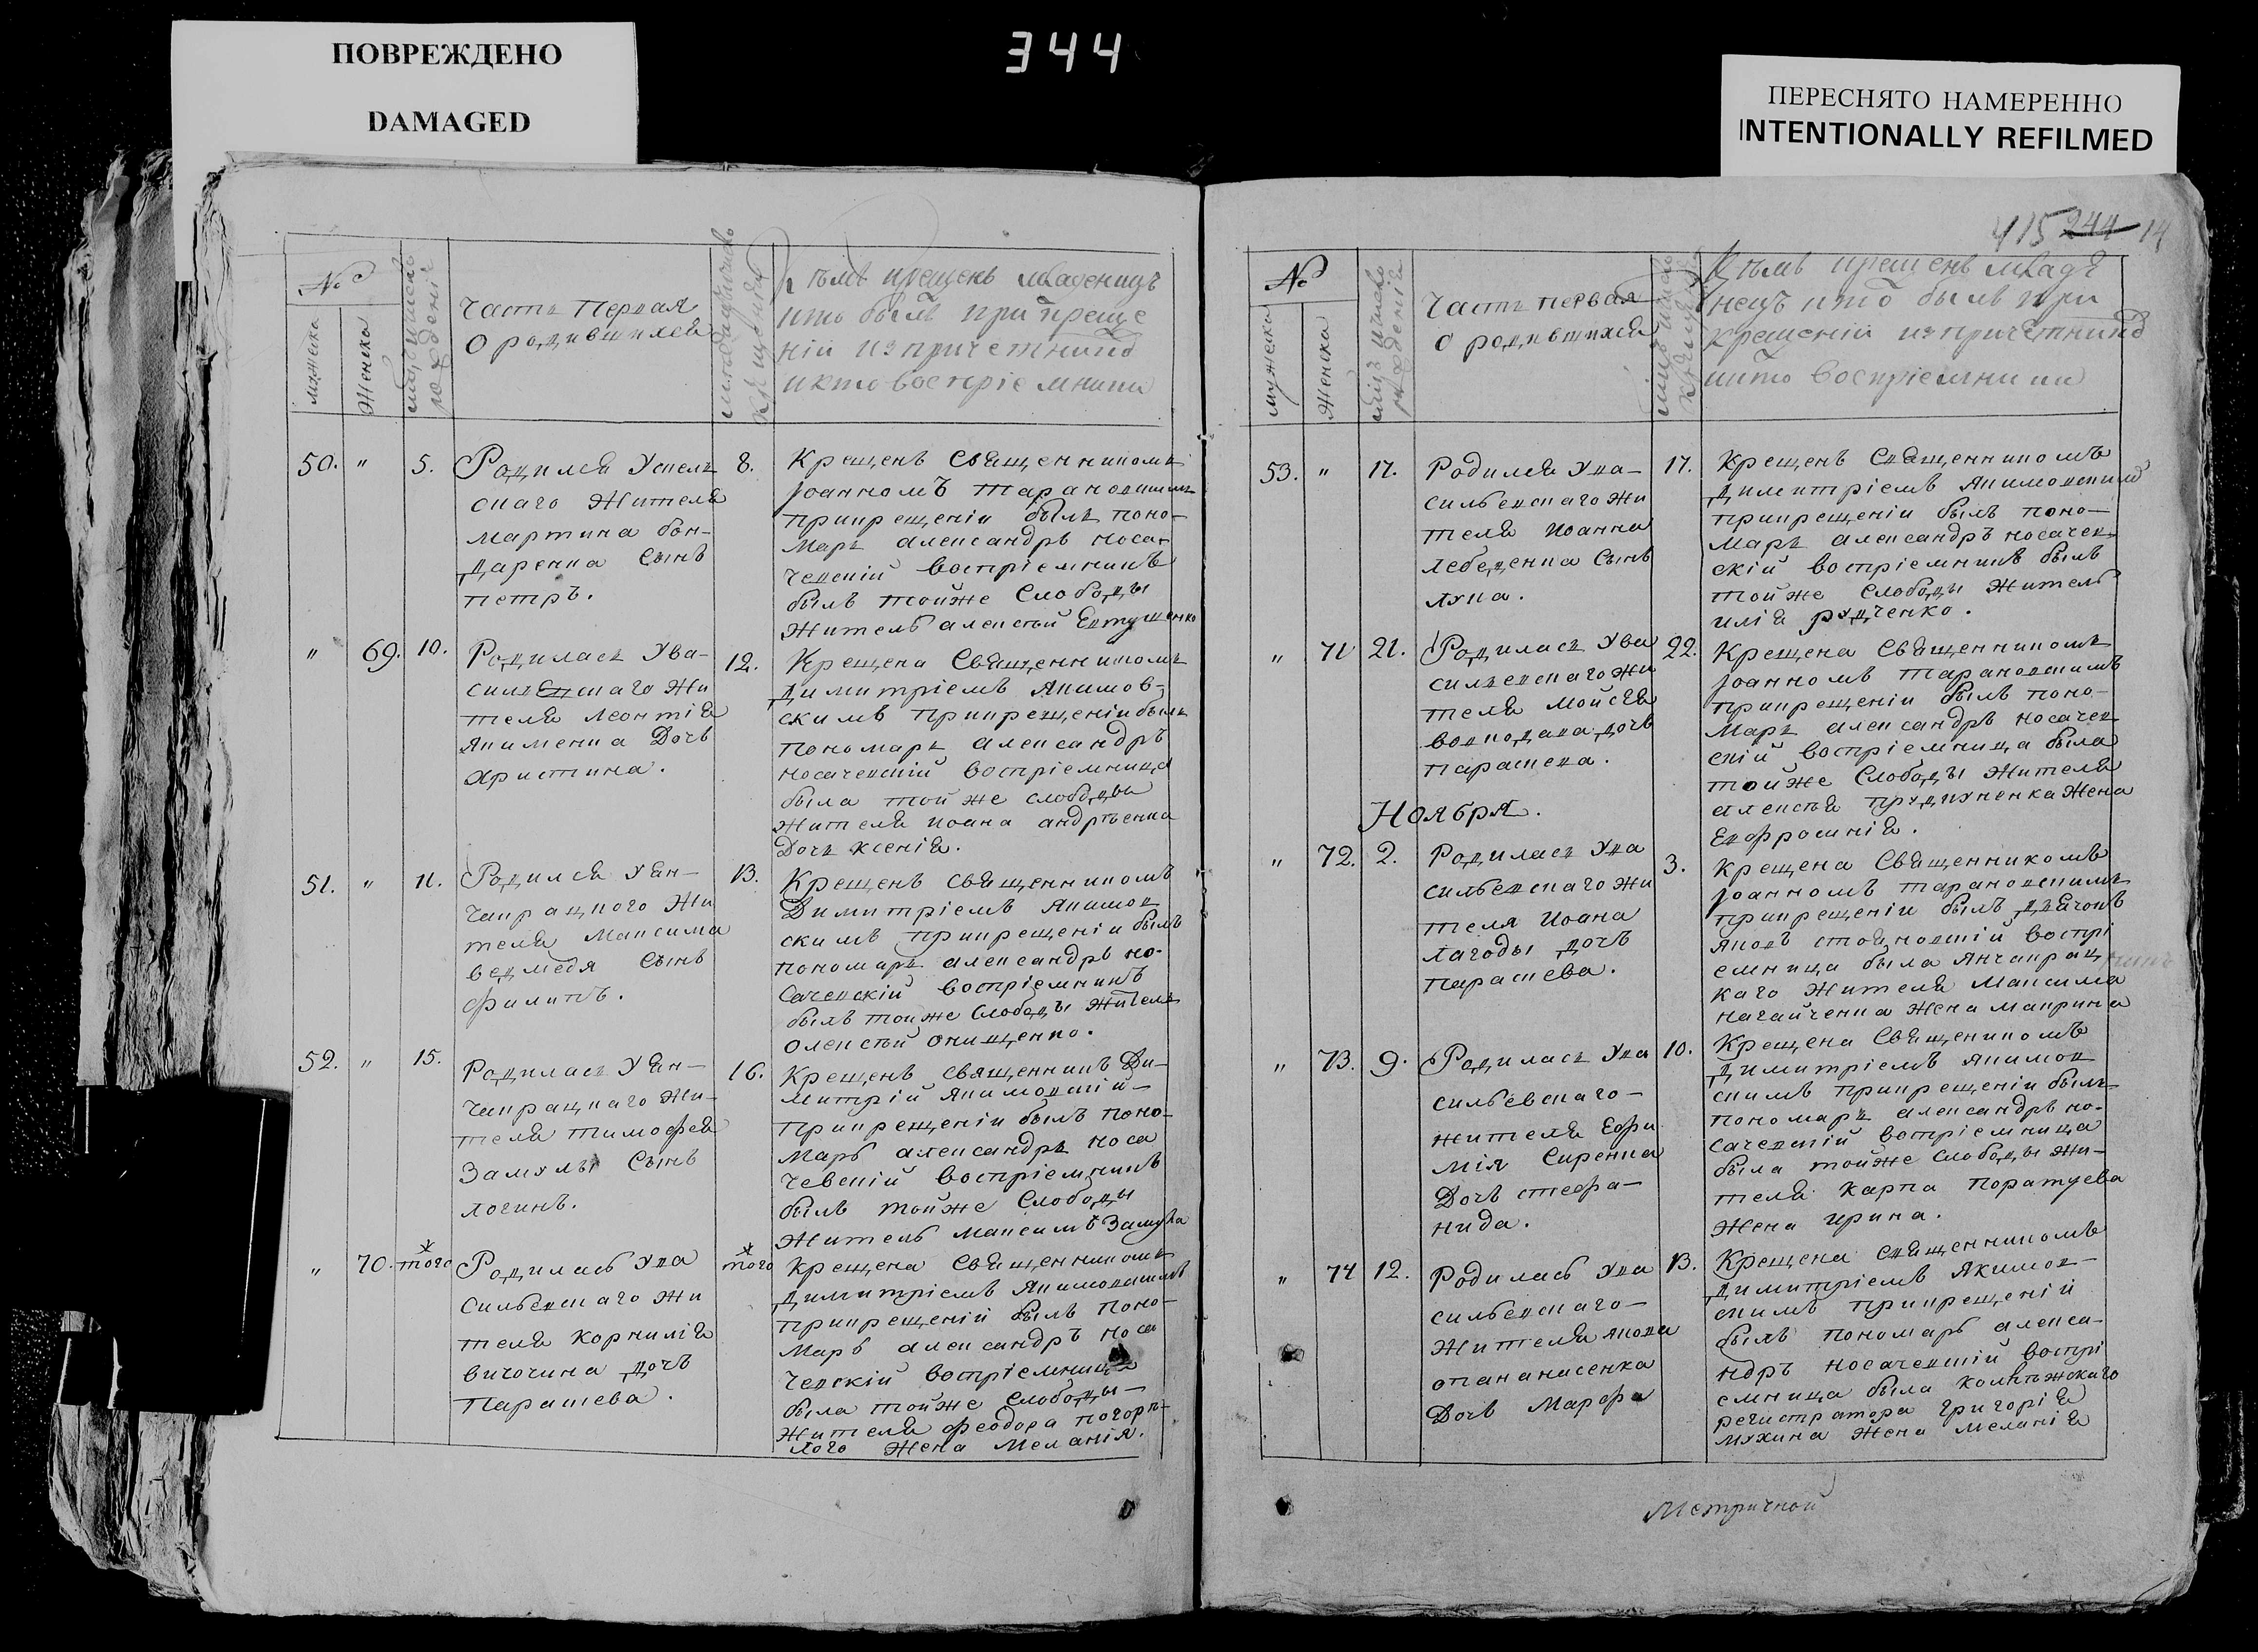 ПОВРЕЖДЕНО
DAMAGED
344
ПЕРЕСНЯТО НАМЕРЕННО
INTENTIONALLY REFILMED
№
мужеска
Женска
Часть первая
о родившихся
Кѣмъ крещенъ младеницъ
кто былъ при креще
ніи изпричетникѡ
икто воспріемники
50. " 5.
Родился Уселъ
скаго Жителя
Мартина бон-
Даренка Сынъ
петръ.
8.
Крещенъ Священникомъ
Іоанномъ тарановскимъ
прикрещеніи былъ поно-
Марь александръ носа-
чевскій воспріемникъ
былъ тойже Слободы
Житель алексѣй Евтушенко
" 69. 10.
Родилась Ува-
сильевскаго Жи
теля Леонтія
Якименка Дочь
Христина.
12.
Крещена Священникомъ
Димитріемъ Якимов-
скимъ прикрещеніи былъ
пономарь александръ
носачевскій воспріемница
была тойже слободы
Жителя иоана андрѣенка
Дочь ксенія.
51. " 11.
Родился Уян-
чикрацкого Жи
теля Максима
ведмедя Сынъ
филипъ.
13.
Крещенъ священникомъ
Димитріемъ Якимов
скимъ прикрещеніи былъ
пономарь александръ но-
сачевскій воспріемникъ
былъ тойже Слободы Житель
олексѣй онищенко.
52. " 15.
Родилась Уян-
чикрацкаго Жи-
теля тимофея
Замулы Сынъ
логинъ.
16.
Крещенъ священникъ Ди-
митрій Якимовскій
прикрещеніи былъ поно-
Марь александръ носа
чевскій воспріемникъ
былъ тойже Слободы
Житель Максимъ Замула
" 70. того
Родилась Ува
сильевскаго Жи
теля Корнилія
вичочина дочь
Парашева.
того
Крещена Священникомъ
Димитріемъ Якимовскимъ
прикрещеній былъ поно-
Марь александръ носа
чевскій воспріемница
была тойже Слободы
Жителя феодора погорѣ-
лого Жена Меланія.
415 244 14
№
мужеска
Женска
Часть первая
о родившихся
Кѣмъ крещенъ младе
нецъ кто былъ при
крещеніи изпричетникѡ
икто воспріемники
53. " 17.
Родился Ува-
сильевскаго Жи
теля Иоанна
лебеденка Сынъ
лука.
17.
Крещенъ Священникомъ
Димитріемъ Якимовскимъ
прикрещеніи былъ поно-
Марь александръ носачев-
скій воспріемникъ былъ
тойже Слободы Житель
илія рудченко.
" 71 21.
Родилась Ува
сильевскаго Жи
теля Мойсея
водкодава дочь
парашева.
22.
Крещена Священникомъ
Іоанномъ тарановскимъ
прикрещеніи былъ поно-
Марь александръ носачев
скій воспріемница была
тойже Слободы Жителя
алексѣя Жена
Евфросинія.
Ноября.
" 72. 2.
Родилась Ува
сильевскаго Жи
теля Иоана
лагоды дочь
Парашева.
3.
Крещена Священникомъ
Іоанномъ тарановскимъ
прикрещеніи былъ дьячокъ
яковъ стояновскій воспрі
емница была Янчикрац
каго Жителя Максима
нагайченка Жена Маврина
" 73. 9.
Родилась Ува
сильевскаго
Жителя Ефи
мія Сиренка
Дочь стефа-
нида.
10.
Крещена Священикомъ
Димитріемъ Якимов
скимъ прикрещеніи былъ
пономарь александръ но-
сачевскій вопріемница
была тойже Слободы Жи-
теля Карпа
Жена ирина.
" 74 12.
Родилась Ува
сильевскаго
Жителя якова
опананасенка
Дочь Марфа
13.
Крещена Священникомъ
Димитріемъ Якимов
скимъ прикрещеній
былъ пономарь алекса-
ндръ носачевскій воспрі
емница была Колѣжскаго
регистратора Григорія
мухина Жена Меланія
Метричной